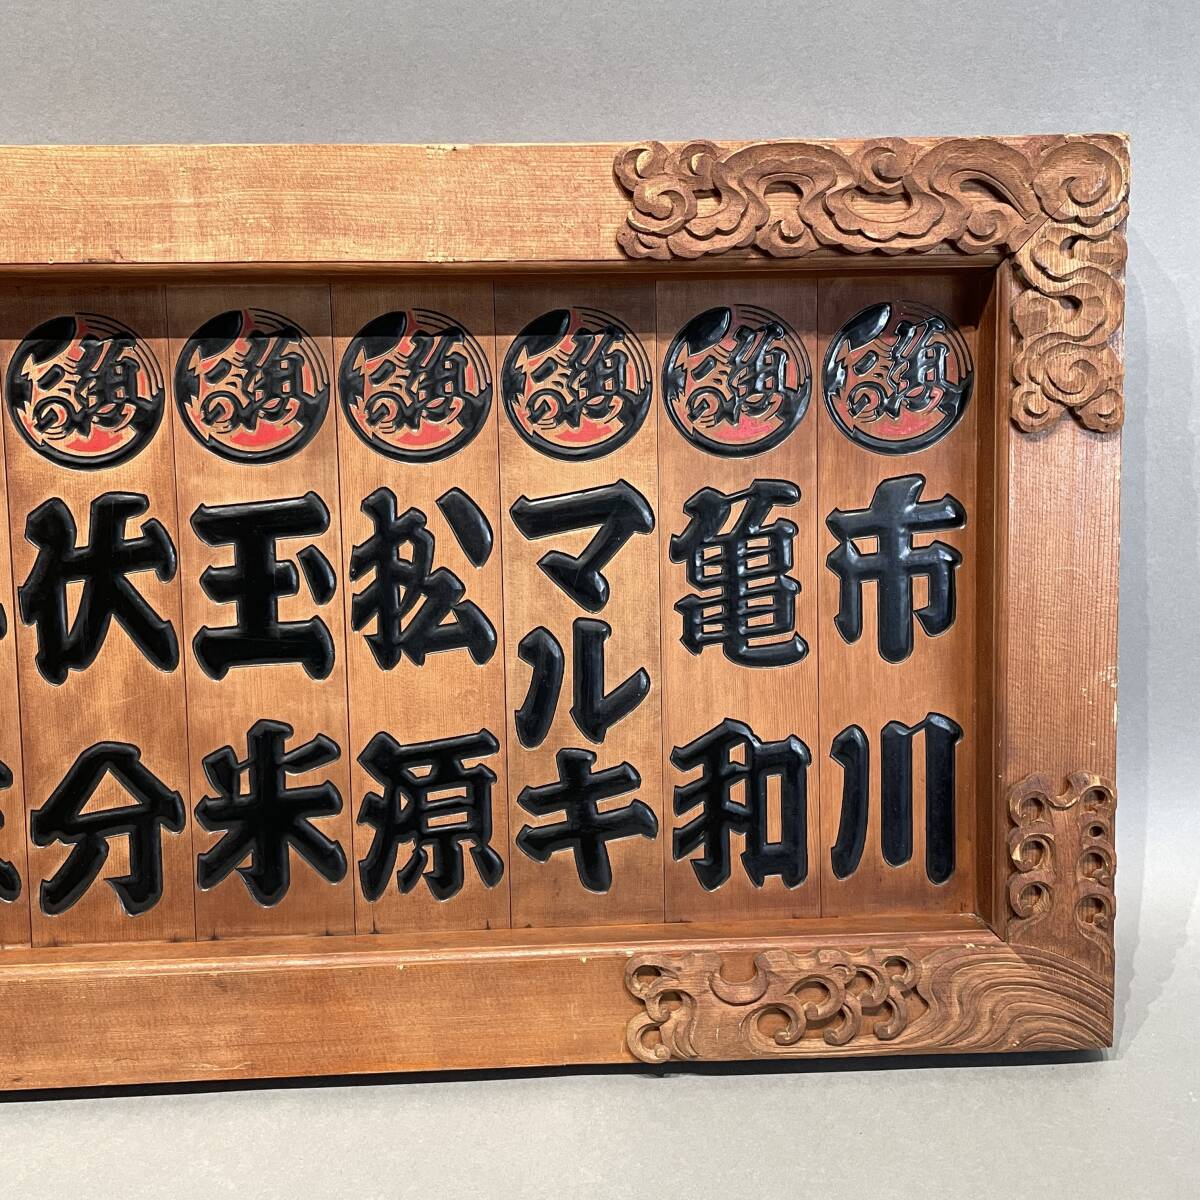 市川
亀和
マルキ
松源
玉米
伏分